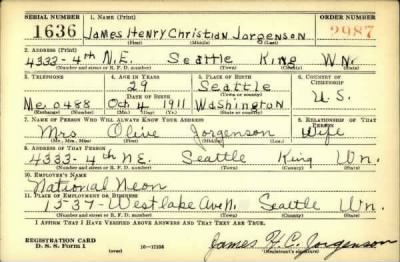 SERIAL NUMBER 1. NAME (Print) ORDER NUMBER
1636 James Henry Christian Jorgenson 2987
(First) (Middle) (Last)
2. ADDRESS (Print)
4333-4th N.E. Seattle King Wn.
(Number and street or R. F. D. number) (Town) (County) (State)
3. TELEPHONE 4. AGE IN YEARS 5. PLACE OF BIRTH 6. COUNTRY OF CITIZENSHIP
29 Seattle
DATE OF BIRTH (Town or county)
Me 0488 Oct 4 1911 Washington U.S.
(Exchange) (Number) (Mo.) (Day) (Yr.) (State or country)
7. NAME OF PERSON WHO WILL ALWAYS KNOW YOUR ADDRESS 8. RELATIONSHIP OF THAT PERSON
Mrs Olive Jorgenson Wife
(Mr., Mrs., Miss) (First) (Middle) (Last)
9. ADDRESS OF THAT PERSON
4333-4th N.E. Seattle King Wn.
(Number and street or R. F. D. number) (Town) (County) (State)
10. EMPLOYER'S NAME
National Neon
11. PLACE OF EMPLOYMENT OR BUSINESS
1537-Westlake Ave N. Seattle Wn.
(Number and street or R. F. D. number) (Town) (County) (State)
I AFFIRM THAT I HAVE VERIFIED ABOVE ANSWERS AND THAT THEY ARE TRUE.
REGISTRATION CARD
D. S. S. Form 1 (over) 16-17105 James H. C. Jorgenson
(Registrant's signature)